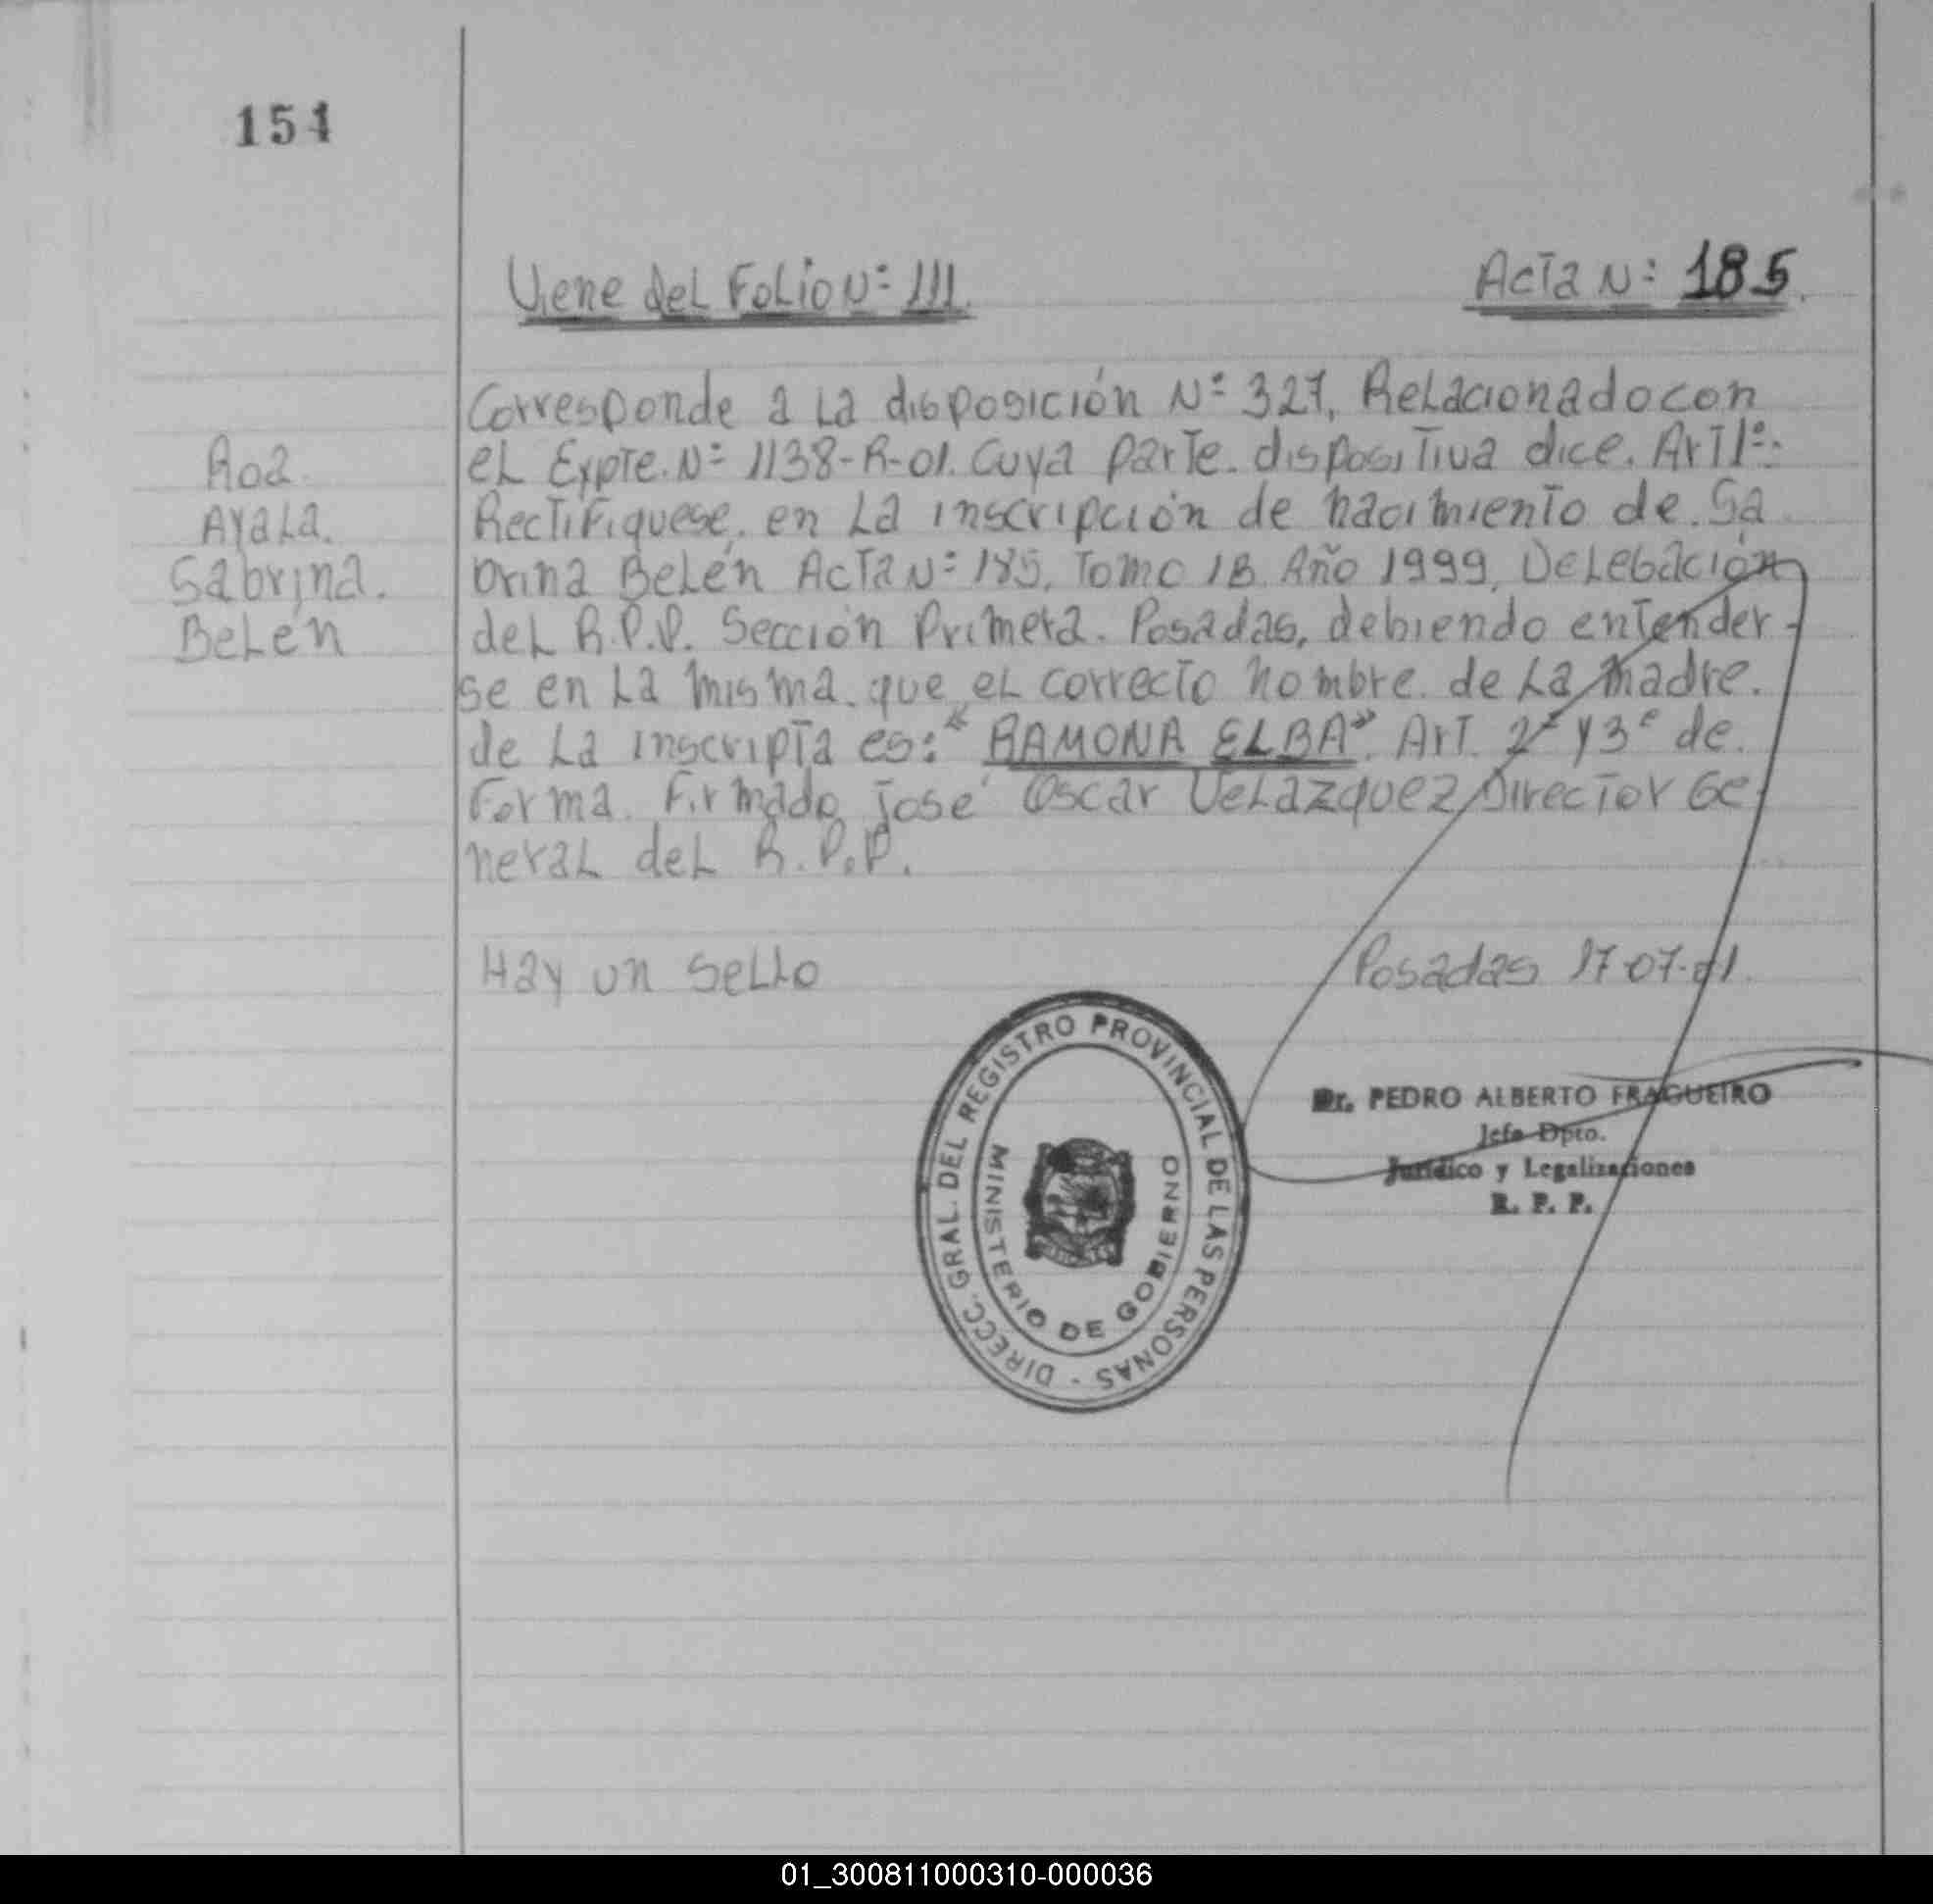 151
Viene del Folio N° 111.
Acta N° 185.
Corresponde a la disposición N° 327, Relacionado con
el Expte. N° 1138-R-01. Cuya parte dispositiva dice. Art 1°:
Rectifiquese, en la inscripción de nacimiento de Sa
brina Belén Acta N° 185, Tomo 1B Año 1999, Delegación
del R.P.P. Sección Primera. Posadas, debiendo entender-
se en la misma que el correcto nombre de la madre.
de la inscripta es: "RAMONA ELBA". Art. 2° y 3° de
Forma. Firmado José Oscar Velazquez Director Ge
neral del R.P.P.
Roa
Ayala.
Sabrina.
Belén
Hay un Sello
Posadas 17-07-01.
DIRECC. GRAL. DEL REGISTRO PROVINCIAL DE LAS PERSONAS -
MINISTERIO DE GOBIERNO
Dr. PEDRO ALBERTO FRAGUEIRO
Jefe Dpto.
Jurídico y Legalizaciones
R. P. P.
01_300811000310-000036